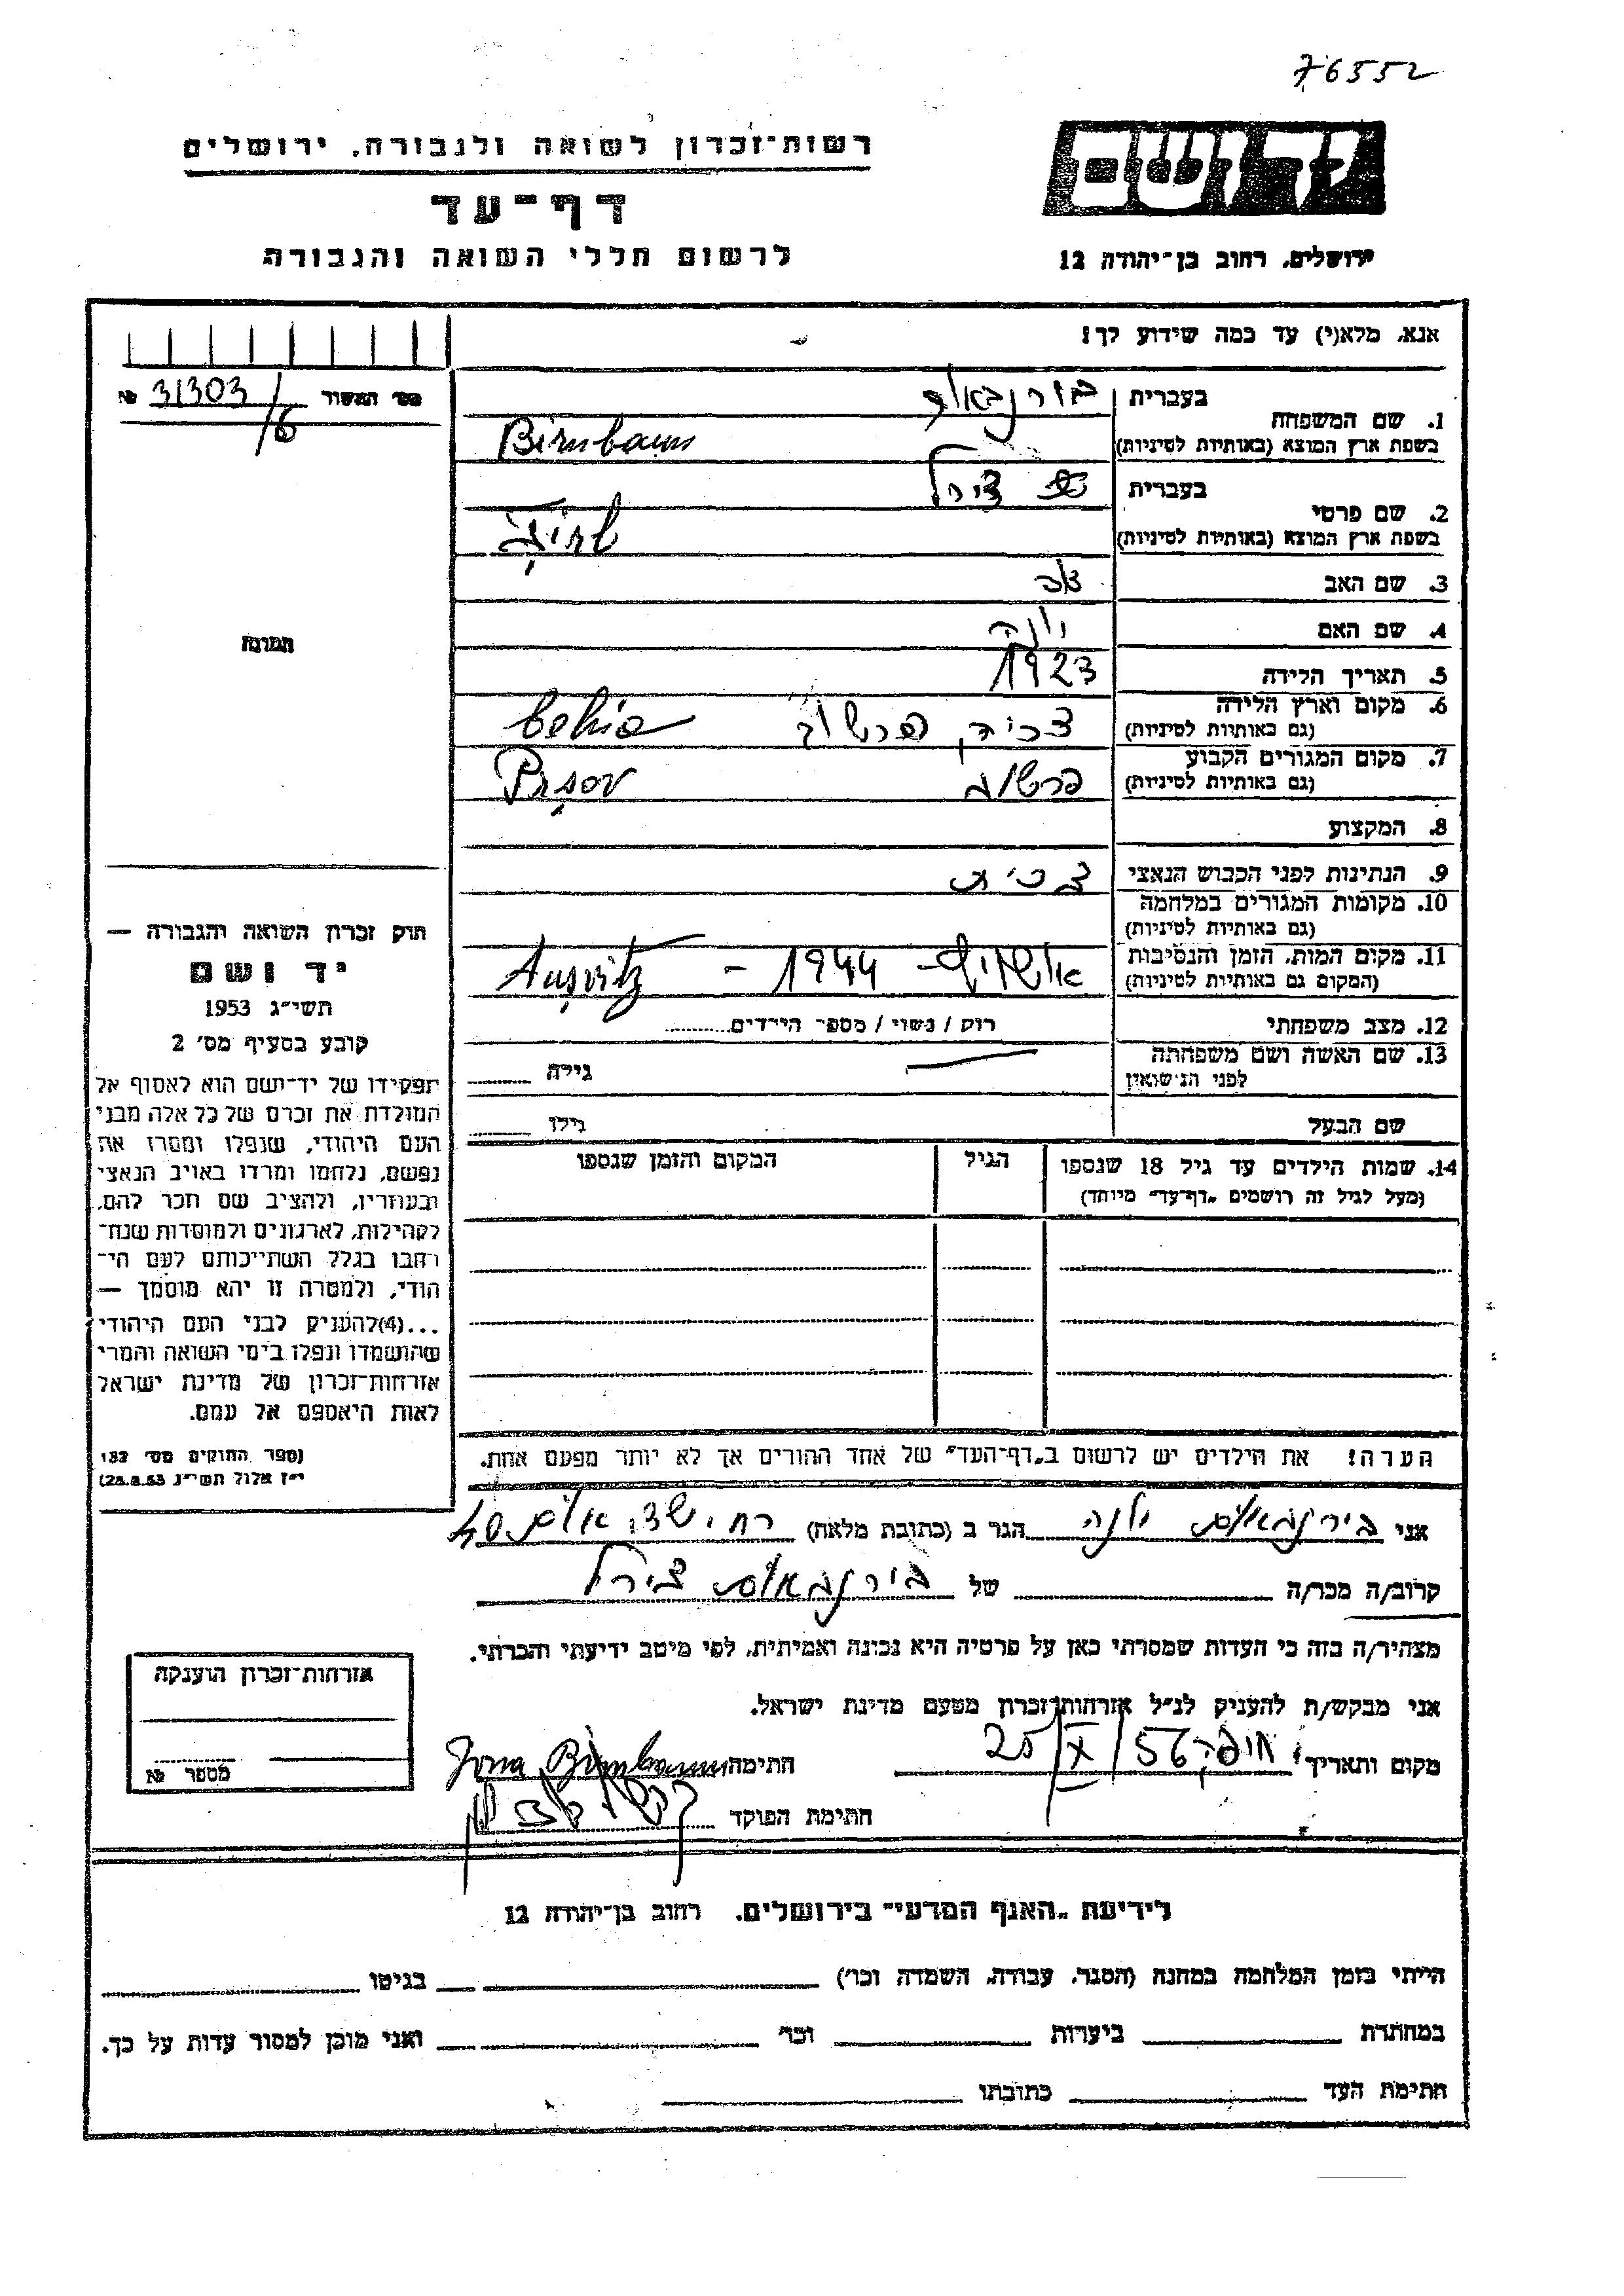 76552
יד ושם
רשות־זכרון לשואה ולגבורה, ירושלים
דף־עד
לרשום חללי השואה והגבורה
ירושלים, רחוב בן־יהודה 12
אנא, מלא(י) עד כמה שידוע לך!
מס' האשור 31303/6 №
תמונה
1. שם המשפחה
בעברית בורנבאום
בשפת ארץ המוצא (באותיות לטיניות) Birnbaum
2. שם פרטי
בעברית צירל
בשפת ארץ המוצא (באותיות לטיניות)
3. שם האב
4. שם האם יונה
5. תאריך הלידה 1923
6. מקום וארץ הלידה
(גם באותיות לטיניות) פרשוב
7. מקום המגורים הקבוע
(גם באותיות לטיניות) פרשוב Prsov
8. המקצוע
9. הנתינות לפני הכבוש הנאצי צכית
10. מקומות המגורים במלחמה
(גם באותיות לטיניות)
11. מקום המות, הזמן והנסיבות
(המקום גם באותיות לטיניות) אושויץ – 1944 – Auşvitz
12. מצב משפחתי רוק / נשוי / מספר הילדים
13. שם האשה ושם משפחתה
לפני הנישואין גילה
שם הבעל גילו
14. שמות הילדים עד גיל 18 שנספו
(מעל לגיל זה רושמים „דף־עד" מיוחד)
הגיל
המקום והזמן שנספו
הערה! את הילדים יש לרשום ב„דף־העד" של אחד ההורים אך לא יותר מפעם אחת.
חוק זכרון השואה והגבורה —
יד ושם
תשי"ג 1953
קובע בסעיף מס' 2
תפקידו של יד־ושם הוא לאסוף אל
המולדת את זכרם של כל אלה מבני
העם היהודי, שנפלו ומסרו את
נפשם, נלחמו ומרדו באויב הנאצי
ובעוזריו, ולהציב שם וזכר להם,
לקהילות, לארגונים ולמוסדות שנח־
רבו בגלל השתייכותם לעם הי־
הודי, ולמטרה זו יהא מוסמך —
...(4)להעניק לבני העם היהודי
שהושמדו ונפלו בימי השואה והמרי
אזרחות־זכרון של מדינת ישראל
לאות היאספם אל עמם.
(ספר החוקים מס' 132
י"ז אלול תשי"ג 28.8.53)
אני בירנבאום יונה הגר ב (כתובת מלאה)
קרוב/ה מכר/ה של בירנבאום צירל
מצהיר/ה בזה כי העדות שמסרתי כאן על פרטיה היא נכונה ואמיתית, לפי מיטב ידיעתי והכרתי.
אני מבקש/ת להעניק לנ"ל אזרחות־זכרון מטעם מדינת ישראל.
מקום ותאריך חיפה 25/X/56 חתימה Jona Birnbaum
חתימת הפוקד
אזרחות־זכרון הוענקה
מספר №
לידיעת „האגף המדעי" בירושלים, רחוב בן־יהודה 12
הייתי בזמן המלחמה במחנה (הסגר, עבודה, השמדה וכו') בגיטו
במחתרת ביערות וכו' ואני מוכן למסור עדות על כך.
חתימת העד כתובתו